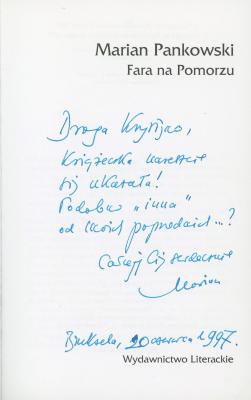 Marian Pankowski
Fara na Pomorzu
Droga Krystyno,
Książeczka nareszcie
się ukazała!
Podobno „inna”
od moich poprzednich...?
Całuję Cię serdecznie
Marian
Bruksela, 20 czerwca 1997.
Wydawnictwo Literackie